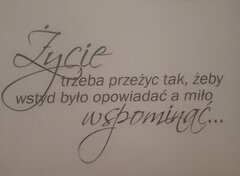 Życie
trzeba przeżyc tak, żeby
wstyd było opowiadać a miło
wspominać...